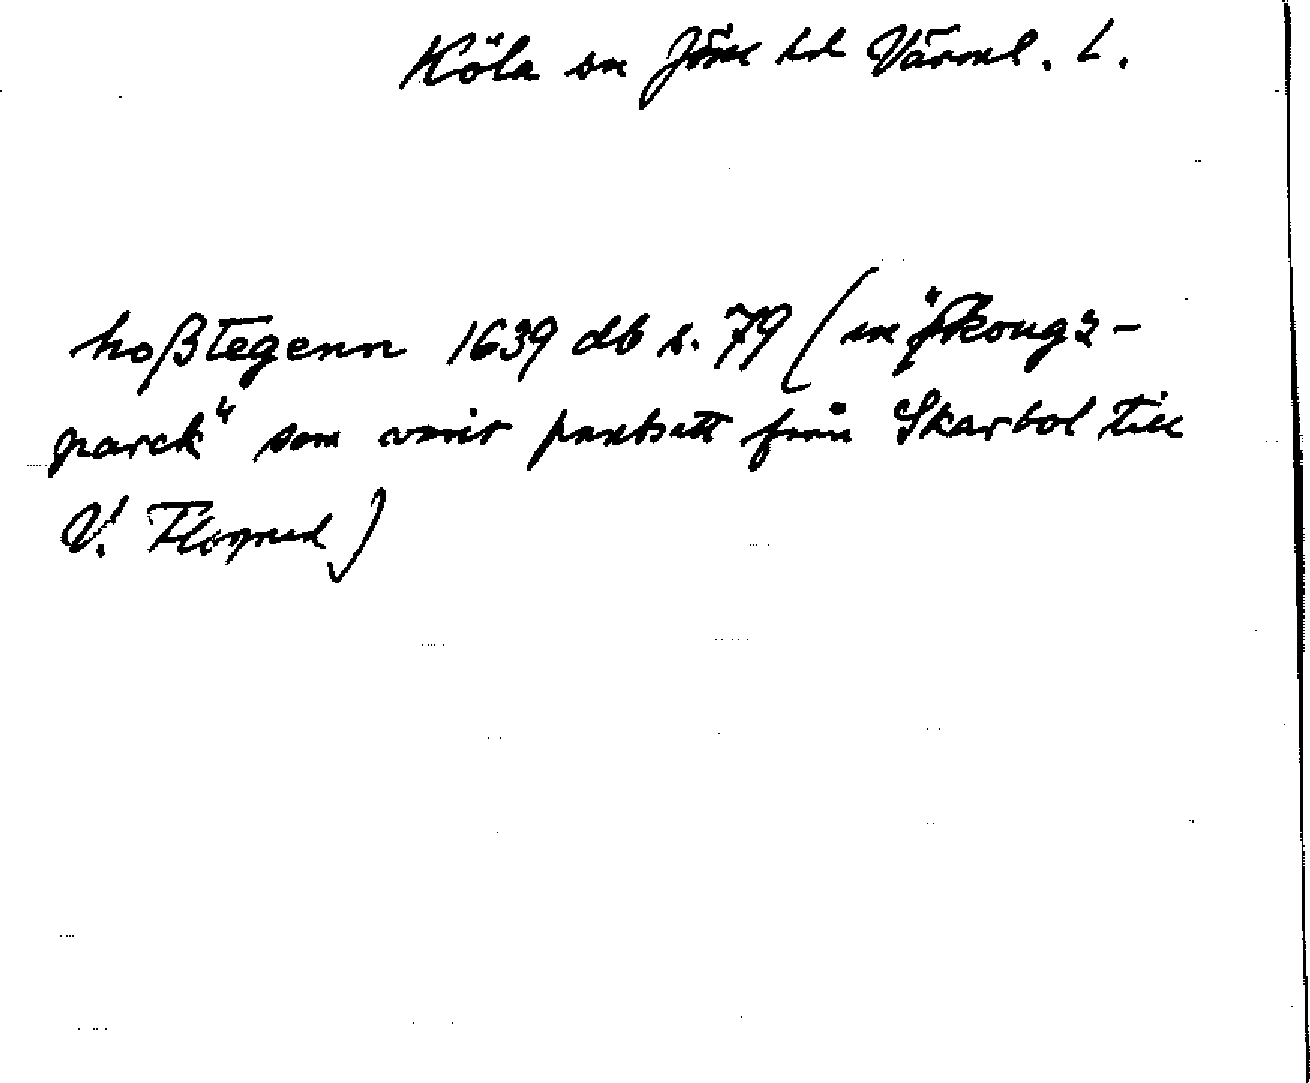 Köla sn Jösse hd Värml. L.
hoßtegenn 1639 db s. 79 (en "skougz-
parck" som varit pantsatt från Skarbol till
V.